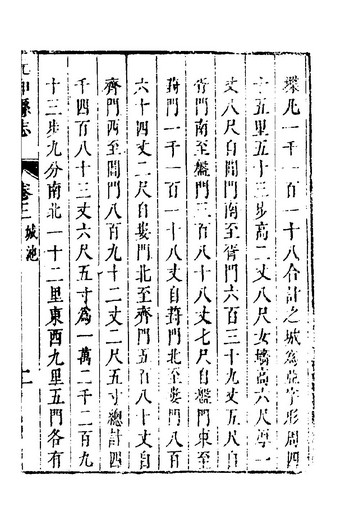 壞凡一千一百一十八合計之城爲亞字形周四
十五里五十三步高二丈八尺女墻高六尺厚一
丈八尺自閶門南至胥門六百三十九丈五尺自
胥門南至盤門三百八十八丈七尺自盤門東至
葑門一千一百一十八丈自葑門北至婁門八百
六十四丈二尺自婁門北至齊門五百八十丈自
齊門西至閶門八百九十二丈二尺五寸總計四
千四百八十三丈六尺五寸爲一萬二千二百九
十三步九分南北一十二里東西九里五門各有
元和縣志
卷三
城池
二